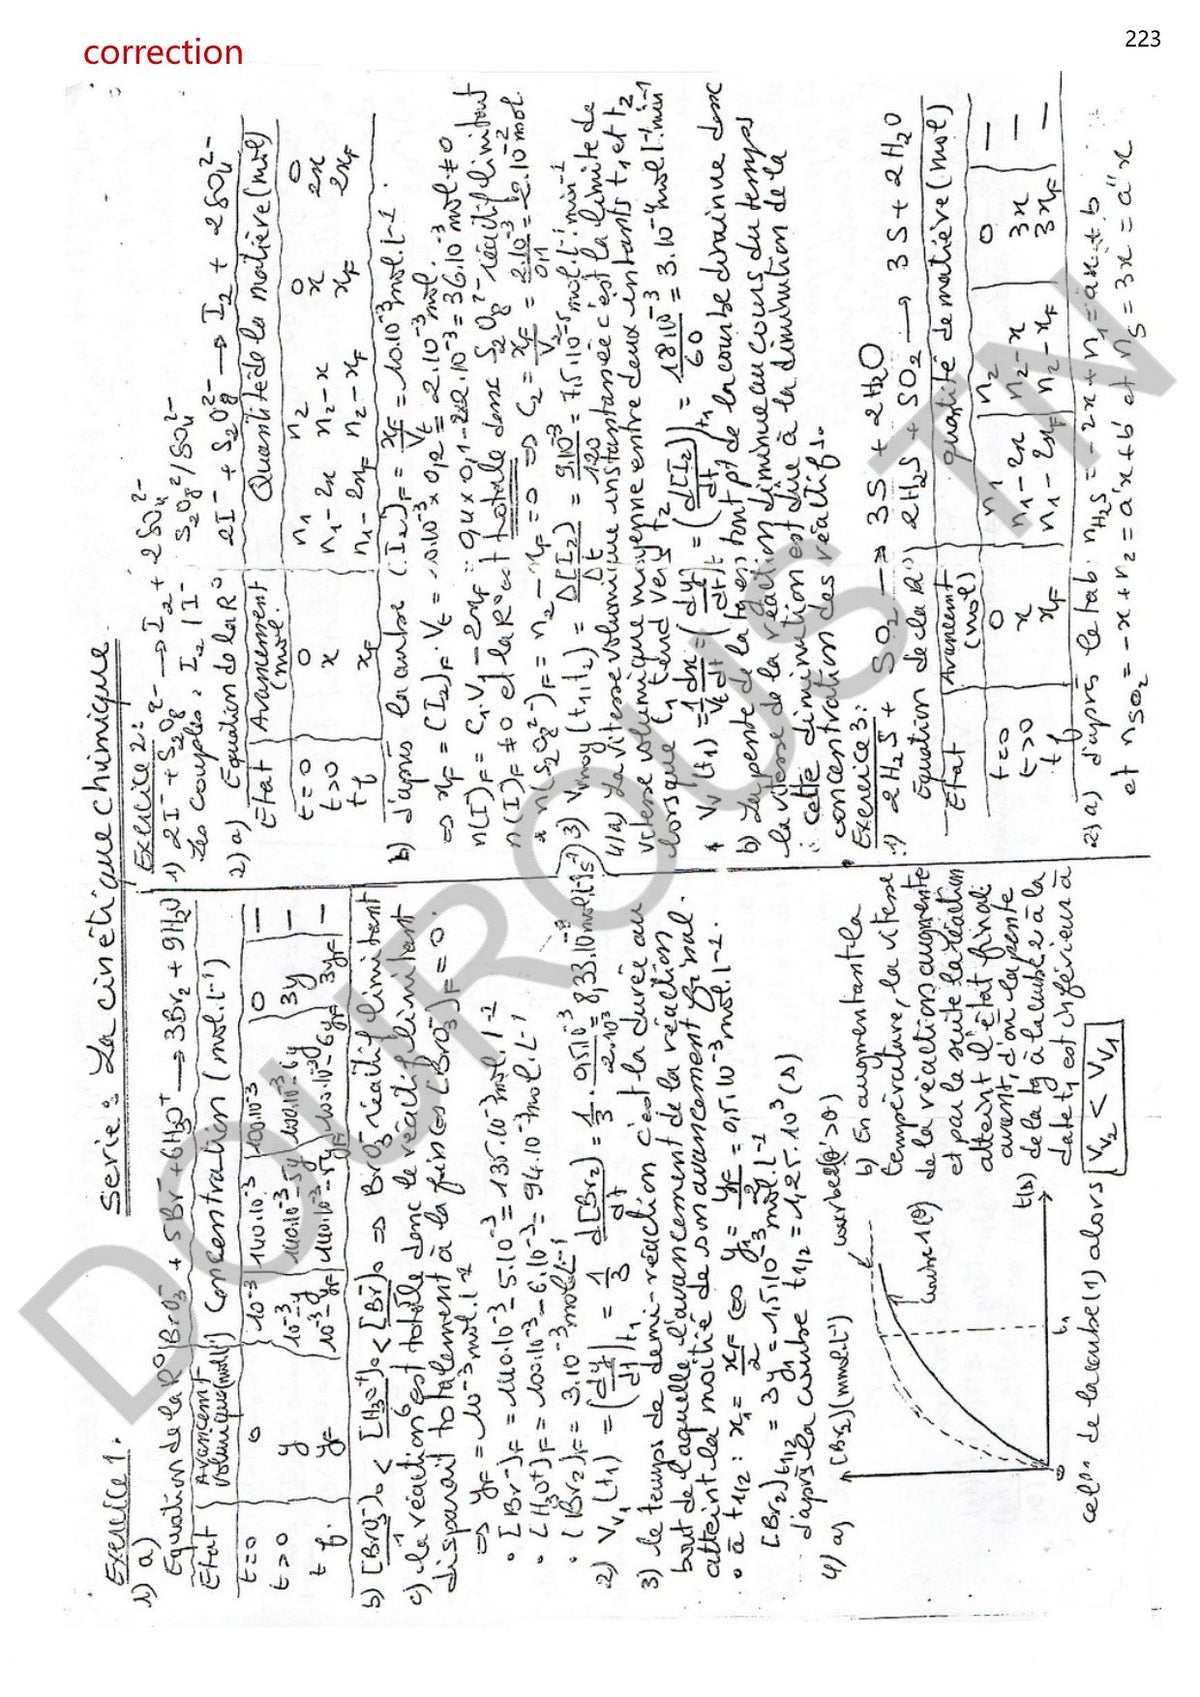 correction
223
Serie: La cinétique chimique
Exercice 1:
1) a)
Equation de la R° | BrO3- + 5Br- + 6H3O+ → 3Br2 + 9H2O
Etat | Avancement volumique (mol.l-1) | Concentration (mol.l-1)
t=0 | 0 | 10-3 | 140.10-3 | 100.10-3 | 0 | —
t>0 | y | 10-3-y | 140.10-3-5y | 100.10-3-6y | 3y | —
tf | yF | 10-3-yF | 3yF | —
b) [BrO3-]0 < [H3O+]0/6 < [Br-]0/5 ⇒ BrO3- réactif limitant
c) la réaction est totale donc le réactif limitant
disparait totalement à la fin ⇔ [BrO3-]F = 0.
⇒ yF = 10-3 mol.l-1
• [Br-]F = 140.10-3 - 5.10-3 = 135.10-3 mol.l-1
• [H3O+]F = 100.10-3 - 6.10-3 = 94.10-3 mol.L-1
• [Br2]F = 3.10-3 mol.l-1
2) Vv1(t1) = (dy/dt)t1 = 1/3 d[Br2]/dt = 1/3 .
3) le temps de demi-réaction c'est la durée au
bout de laquelle l'avancement de la réaction
atteint la moitié de son avancement final.
• à t1/2 : x1 = xF/2 ⇔ y1 = yF/2 = 0,5.10-3 mol.l-1.
[Br2]t1/2 = 3y1 = 1,5.10-3 mol.l-1
d'après la courbe t1/2 = 1,25.10^3 (s)
4) a)
[Br2](mmol.l-1)
courbe2(θ'>θ)
courbe1(θ)
t1
t(s)
0
b) En augmentant la
température, la vitesse
de la réaction augmente
et par la suite la réaction
atteint l'état final
avant, d'où la pente
de la tg à la courbe 2 à la
date t1 est inférieure à
celle de la courbe (1) alors Vv2 < Vv1
Exercice 2:
1) 2I- + S2O8^2- → I2 + 2SO4^2-
Les couples: I2 / I- S2O8^2- / SO4^2-
2) a) Equation de la R° 2I- + S2O8^2- → I2 + 2SO4^2-
Etat | Avancement (mol) | Quantité de la matière (mol)
t=0 | 0 | n1 | n2 | 0 | 0
t>0 | x | n1-2x | n2-x | x | 2x
tf | xF | n1-2xF | n2-xF | xF | 2xF
b) d'après la courbe [I2]F = xF/Vt = 10.10-3 mol.l-1.
⇒ xF = [I2]F.Vt = 10.10-3 × 0,2 = 2.10-3 mol.
n(I-)F = C1.V1 - 2xF = 0,4 × 0,1 - 2×2.10-3 = 36.10-3 mol ≠ 0
n(I-)F ≠ 0 et la R° est totale donc S2O8^2- réactif limitant
* n(S2O8^2-)F = n2 - xF = 0 ⇒ C2 = xF/V2 = 2.10-3/0,1 = 2.10-2 mol.
3) Vvmoy(t1,t2) = Δ[I2]/Δt = 9.10-3/120 = 7,5.10-5 mol.l-1.min-1
4) a) La vitesse volumique instantanée c'est la limite de
vitesse volumique moyenne entre deux instants t1 et t2
lorsque t1 tend vers t2
* Vv(t1) = 1/Vt dx/dt = (dy/dt)t1 = (d[I2]/dt)t1 = 18.10-3/60 = 3.10-4 mol.l-1.min-1
b) La pente de la tg en tout pt de la courbe diminue donc
la vitesse de la réaction diminue au cours du temps
cette diminution est dûe à la diminution de la
concentration des réactifs.
Exercice 3:
1) 2H2S + SO2 → 3S + 2H2O
Equation de la R° 2H2S + SO2 → 3S + 2H2O
Etat | Avancement (mol) | quantité de matière (mol)
t=0 | 0 | n1 | n2 | 0 | —
t>0 | x | n1-2x | n2-x | 3x | —
tf | xF | n1-2xF | n2-xF | 3xF | —
2) a) d'après le tab: nH2S = -2x + n1 = ax + b
et nSO2 = -x + n2 = a'x + b' et nS = 3x = a"x
DOUROUS TN